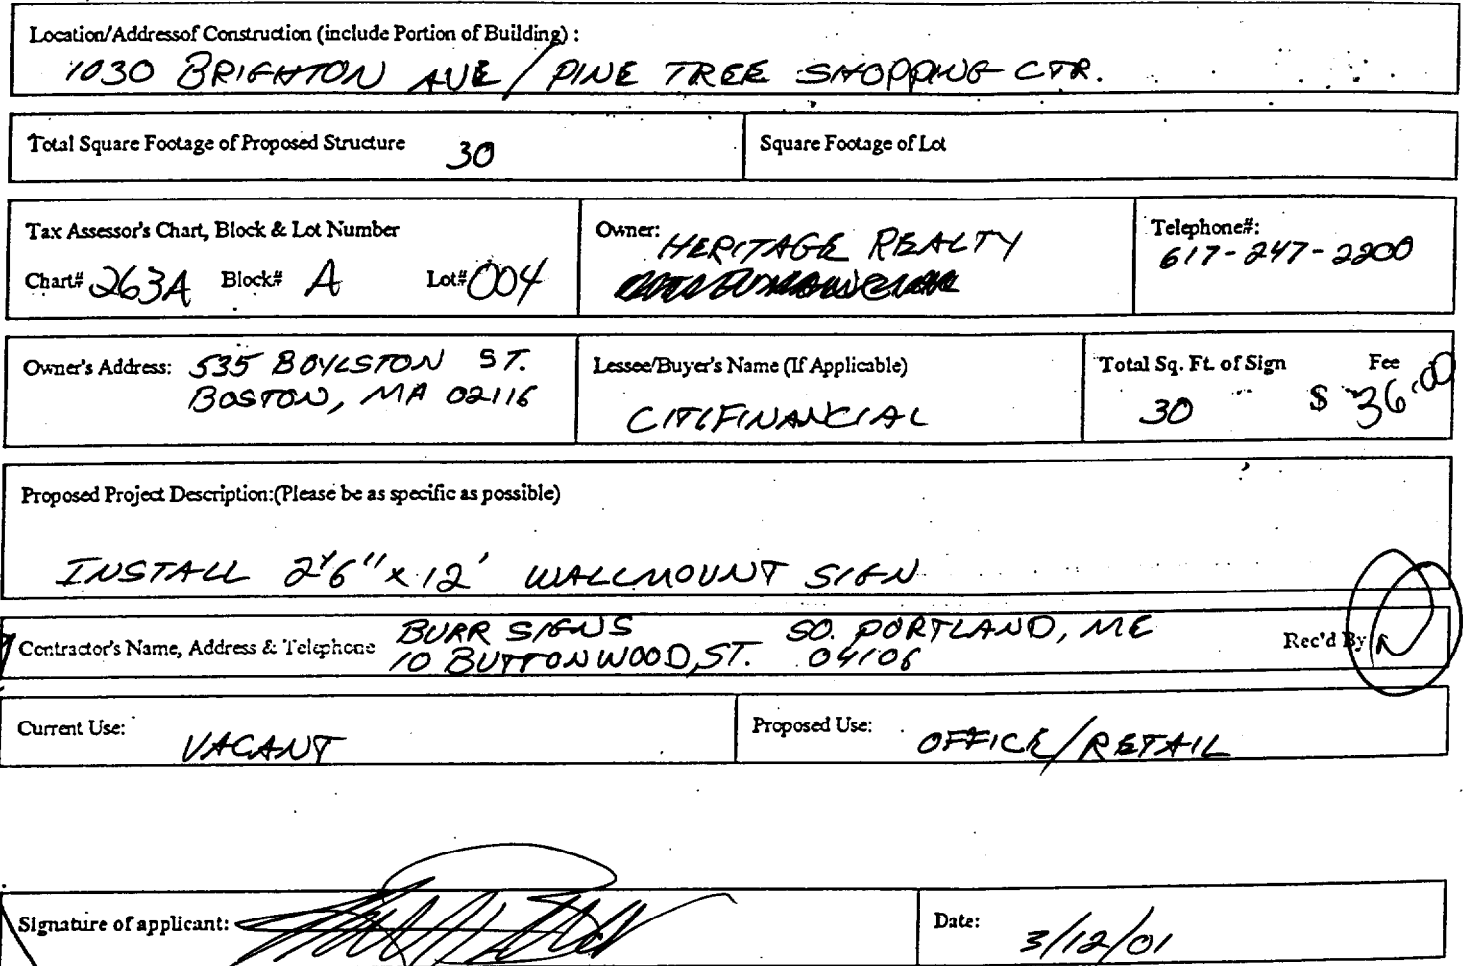 Location/Addressof Construction (include Portion of Building) :
1030 BRIGHTON AVE / PINE TREE SHOPPING CTR.
Total Square Footage of Proposed Structure 30 Square Footage of Lot
Tax Assessor's Chart, Block & Lot Number
Chart# 263A Block# A Lot# 004
Owner: HERITAGE REALTY
Telephone#:
617-247-2200
Owner's Address: 535 BOYLSTON ST.
BOSTON, MA 02116
Lessee/Buyer's Name (If Applicable)
CITIFINANCIAL
Total Sq. Ft. of Sign Fee
30 $ 36.00
Proposed Project Description:(Please be as specific as possible)
INSTALL 2'6" x 12' WALLMOUNT SIGN
Contractor's Name, Address & Telephone BURR SIGNS SO. PORTLAND, ME
10 BUTTONWOOD ST. 04106
Rec'd By
Current Use: VACANT
Proposed Use: OFFICE/RETAIL
Signature of applicant:
Date: 3/12/01